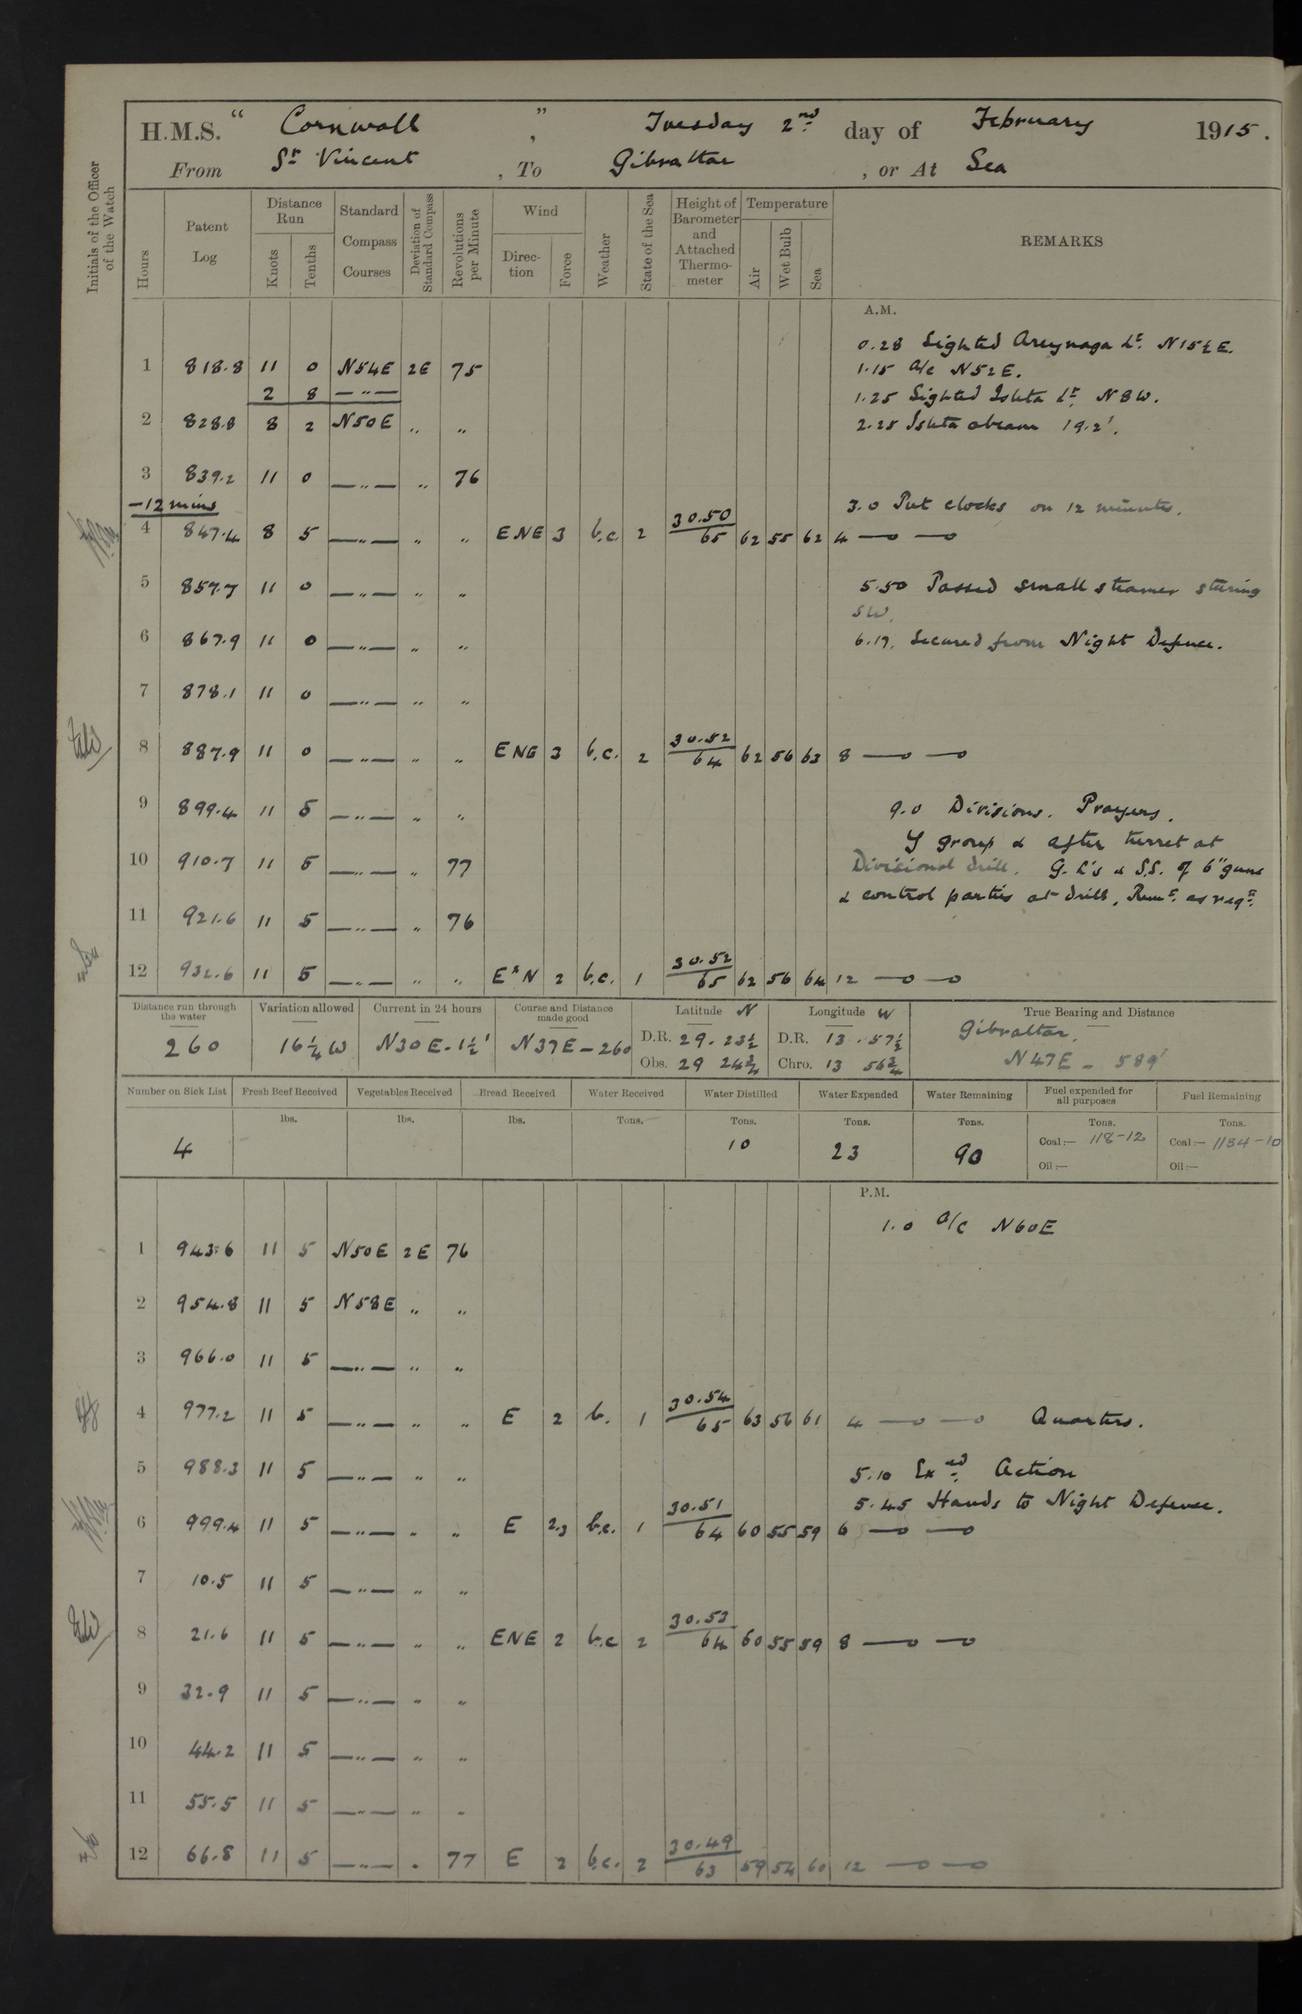 H.M.S. "Cornwall", Tuesday 2nd day of February 1915.
From St Vincent, To Gibraltar, or At Sea
Initials of the Officer of the Watch
Hours Patent Log Distance Run Knots Tenths Standard Compass Courses Deviation of Standard Compass Revolutions per Minute Wind Direction Force Weather State of the Sea Height of Barometer and Attached Thermometer Temperature Air Wet Bulb Sea REMARKS
A.M.
0.28 Sighted Lt. N15½E.
1 818.8 11 0 N54E 2E 75 1.15 A/c N52E.
2 8 —"— 1.25 Sighted Isleta Lt. N8W.
2 828.8 8 2 N50E " " 2.25 Isleta abeam 19.2'.
3 839.2 11 0 —"— " 76
-12 mins 3.0 Put clocks on 12 minutes.
4 847.4 8 5 —"— " " ENE 3 b.c. 2 30.50/65 62 55 62 4 —o —o
5 857.7 11 0 —"— " " 5.50 Passed small steamer stering
SW.
6 867.9 11 0 —"— " " 6.17. Secured from Night Defence.
7 878.1 11 0 —"— " "
8 887.9 11 0 —"— " " ENE 3 b.c. 2 30.52/64 62 56 63 8 —o —o
9 899.4 11 5 —"— " " 9.0 Divisions. Prayers.
Y group & after turret at
10 910.7 11 5 —"— " 77 Divisional drill. G.L's & S.S. of 6" guns
& control parties at drill, Remr. as reqd.
11 921.6 11 5 —"— " 76
12 932.6 11 5 —"— " " ExN 2 b.c. 1 30.52/65 62 56 64 12 —o —o
Distance run through the water Variation allowed Current in 24 hours Course and Distance made good Latitude N Longitude W True Bearing and Distance
260 16¼ W N30E-1½' N37E-260 D.R. 29.23½ D.R. 13.57½ Gibraltar.
Obs. 29 24¾ Chro. 13 56¾ N47E - 589'
Number on Sick List Fresh Beef Received Vegetables Received Bread Received Water Received Water Distilled Water Expended Water Remaining Fuel expended for all purposes Fuel Remaining
lbs. lbs. lbs. Tons. Tons. Tons. Tons. Tons. Tons.
4 10 23 90 Coal:— 118-12 Coal:— 1134-10
Oil:— Oil:—
P.M.
1.0 A/c N60E
1 943.6 11 5 N50E 2E 76
2 954.8 11 5 N58E " "
3 966.0 11 5 —"— " "
4 977.2 11 5 —"— " " E 2 b. 1 30.54/65 63 56 61 4 —o —o Quarters.
5 988.3 11 5 —"— " " 5.10 Exed Action
5.45 Hands to Night Defence.
6 999.4 11 5 —"— " " E 2.3 b.c. 1 30.51/64 60 55 59 6 —o —o
7 10.5 11 5 —"— " "
8 21.6 11 5 —"— " " ENE 2 b.c 2 30.53/64 60 55 59 8 —o —o
9 32.9 11 5 —"— " "
10 44.2 11 5 —"— " "
11 55.5 11 5 —"— " "
12 66.8 11 5 —"— " 77 E 2 b.c. 2 30.49/63 59 54 60 12 —o —o